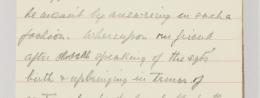 he meant by answering in such a
fashion. Whereupon our friend
after speaking of the sgts
birth & upbringing in terms of